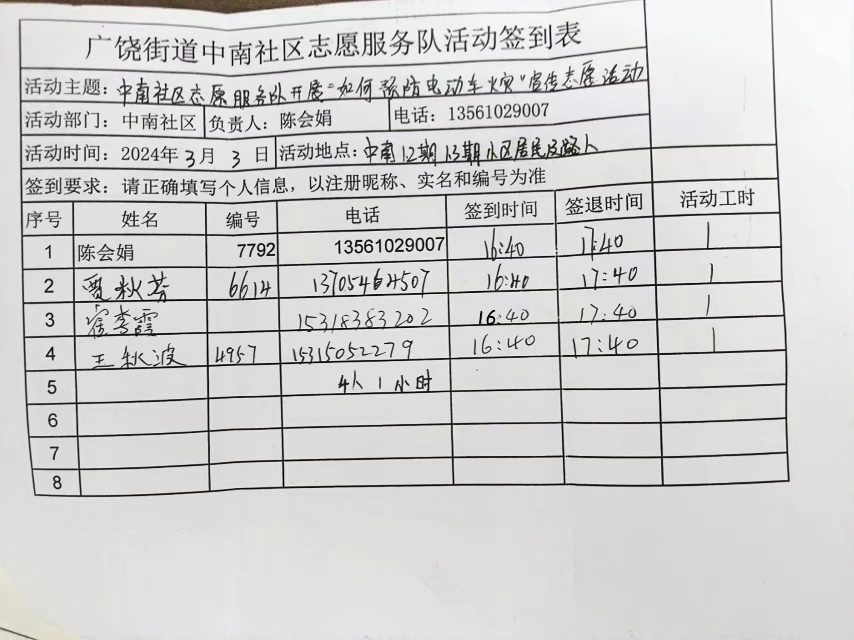 广饶街道中南社区志愿服务队活动签到表
活动主题：中南社区志愿服务队开展“如何预防电动车火灾”宣传志愿活动
活动部门：中南社区 负责人：陈会娟 电话：13561029007
活动时间：2024年 3 月 3 日 活动地点：中南12期13期小区居民及路人
签到要求：请正确填写个人信息，以注册昵称、实名和编号为准
序号 姓名 编号 电话 签到时间 签退时间 活动工时
1 陈会娟 7792 13561029007 16:40 17:40 1
2 贾秋芳 6614 13705464507 16:40 17:40 1
3 15318383202 16:40 17:40 1
4 王秋波 4957 15315052279 16:40 17:40 1
5 4人1小时
6
7
8